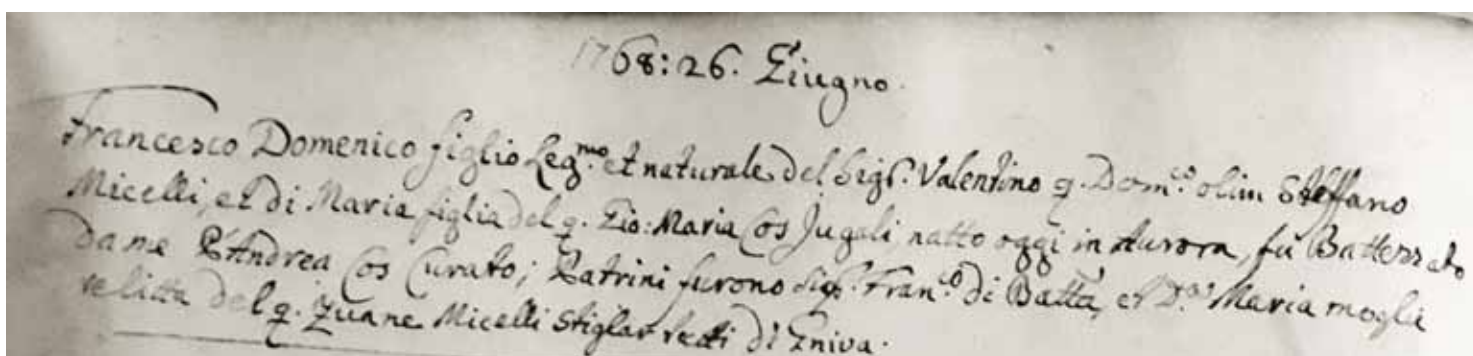 1768: 26. Giugno.
Francesco Domenico figlio Leg.mo et naturale del Sig.r Valentino q. Dom.co olim Steffano
Micelli, et di Maria figlia del q. Gio: Maria Cos Jugali, natto oggi in Aurora, fu Battezzato
da me P. Andrea Cos Curato; Patrini furono Sig.r Fran.co di Batta, et D.a Maria moglie
relitta del q. Zuane Micelli Stiglar di Gniva.